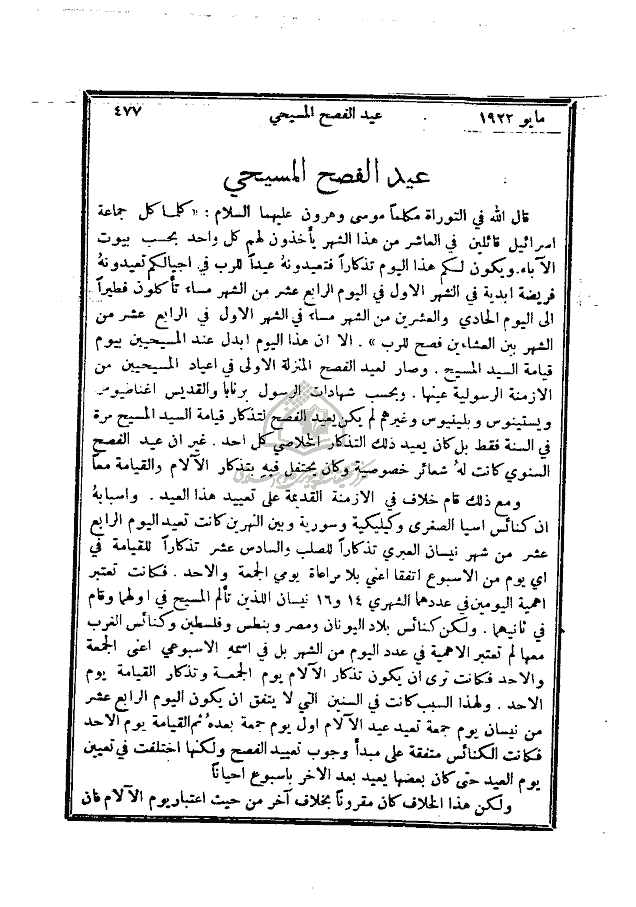 مايو ١٩٢٢ عيد الفصح المسيحي ٤٧٧
عيد الفصح المسيحي
قال الله في التوراة مكلماً موسى وهرون عليهما السلام : « كلما كل جماعة
اسرائيل قائلين في العاشر من هذا الشهر يأخذون لهم كل واحد بحسب بيوت
الآباء . ويكون لكم هذا اليوم تذكاراً فتعيدونهُ عيداً للرب في اجيالكم تعيدونهُ
فريضة ابدية في الشهر الاول في اليوم الرابع عشر من الشهر مساء تأكلون فطيراً
الى اليوم الحادي والعشرين من الشهر مساء في الشهر الاول في الرابع عشر من
الشهر بين العشاءين فصح للرب » . الا ان هذا اليوم ابدل عند المسيحيين بيوم
قيامة السيد المسيح . وصار لعيد الفصح المنزلة الاولى في اعياد المسيحيين من
الازمنة الرسولية عينها . وبحسب شهادات الرسول برنابا والقديس اغناضيوس
ويستينوس وبلينيوس وغيرهم لم يكن يعيد الفصح لتذكار قيامة السيد المسيح مرة
في السنة فقط بل كان يعيد ذلك التذكار الخلاصي كل احد . غير ان عيد الفصح
السنوي كانت لهُ شعائر خصوصية وكان يحتفل فيهِ بتذكار الآلام والقيامة معاً
ومع ذلك قام خلاف في الازمنة القديمة على تعييد هذا العيد . واسبابهُ
ان كنائس اسيا الصغرى وكيليكية وسورية وبين النهرين كانت تعيد اليوم الرابع
عشر من شهر نيسان العبري تذكاراً للصلب والسادس عشر تذكاراً للقيامة في
اي يوم من الاسبوع اتفقا اعني بلا مراعاة يومي الجمعة والاحد . فكانت تعتبر
اهمية اليومين في عددهما الشهري ١٤ و١٦ نيسان اللذين تألم المسيح في اولهما وقام
في ثانيهما . ولكن كنائس بلاد اليونان ومصر وبنطس وفلسطين وكنائس الغرب
معها لم تعتبر الاهمية في عدد اليوم من الشهر بل في اسمهِ الاسبوعي اعني الجمعة
والاحد فكانت ترى ان يكون تذكار الآلام يوم الجمعة وتذكار القيامة يوم
الاحد . ولهذا السبب كانت في السنين التي لا يتفق ان يكون اليوم الرابع عشر
من نيسان يوم جمعة تعيد عيد الآلام اول يوم جمعة بعدهُ ثم القيامة يوم الاحد
فكانت الكنائس متفقة على مبدأ وجوب تعييد الفصح ولكنها اختلفت في تعيين
يوم العيد حتى كان بعضها يعيد بعد الاخر باسبوع احياناً
ولكن هذا الخلاف كان مقروناً بخلاف آخر من حيث اعتبار يوم الآلام فان